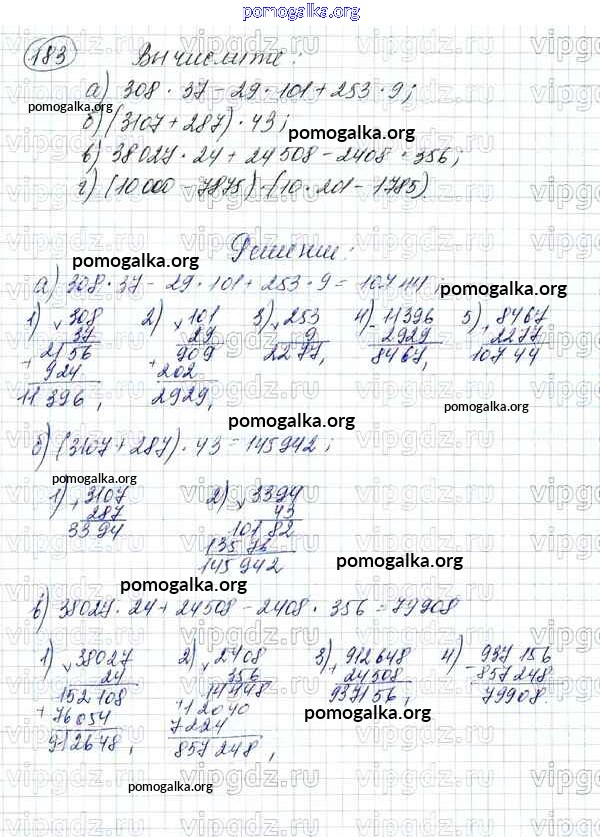 pomogalka.org
183 Вычислите:
а) 308 · 37 - 29 · 101 + 253 · 9;
pomogalka.org
б) (3107 + 287) · 43;
pomogalka.org
в) 38027 · 24 + 24508 - 2408 · 356;
г) (10 000 - 7875) · (10 · 201 - 1785).
Решение:
pomogalka.org
а) 308 · 37 - 29 · 101 + 253 · 9 = 10744;
pomogalka.org
1) × 308 2) × 101 3) × 253 4) - 11396 5) + 8467
37 29 9 2929 2277
2156 909 2277, 8467, 10744
+ 924 + 202
11396, 2929,
pomogalka.org
б) (3107 + 287) · 43 = 145942;
pomogalka.org
1) + 3107 2) × 3394
287 43
3394 10182
13576
145942
pomogalka.org
pomogalka.org
в) 38027 · 24 + 24508 - 2408 · 356 = 79908
1) × 38027 2) × 2408 3) + 912648 4) - 937156
24 356 24508 857248
152108 14448 937156, 79908.
+ 76054 + 12040
912648, 7224
857248,
pomogalka.org
pomogalka.org
vipgdz.ru